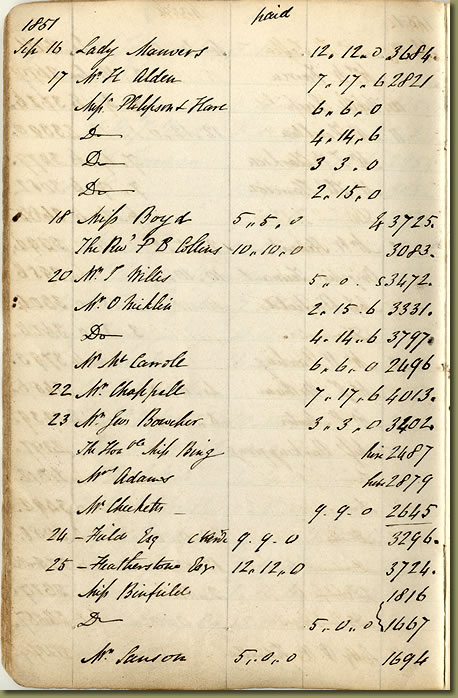 1851 paid
Sep 16 Lady Manvers 12.12.0 3684.
17 Mr H Alden 7.17.6 2821
Messrs Philipson & Hare 6.6.0
Do 4.14.6
Do 3 3.0
Do 2.15.0
18 Miss Boyd 5.5.0 3725.
The Revd F B Collins 10.10.0 3083.
20 Mr T Willis 5.0. 3472.
Mr O Nicklin 2.15.6 3331.
Do 4.14.6 3797.
Mr McCarrole 6.6.0 2496
22 Mr Chappell 7.17.6 4013.
23 Mr Geo Bowcher 3.3.0 3202.
The Honble Miss Bing hire 2487
Mrs Adams hire 2879
Mr Checketts – 9.9.0 2645
24 – Field Esq 9.9.0 3296.
25 – Featherstone Esq 12.12.0 3724.
Miss Binfield 1816
Do 5.0.0 1667
Mr Sanson 5.0.0 1694